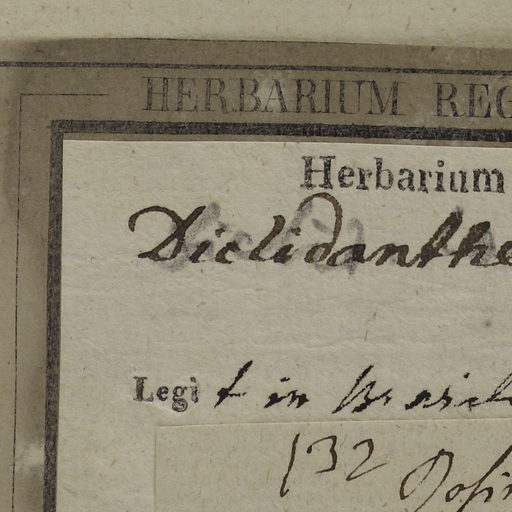 HERBARIUM REG
Herbarium
Diclidanthe
Legit in Brasil
132